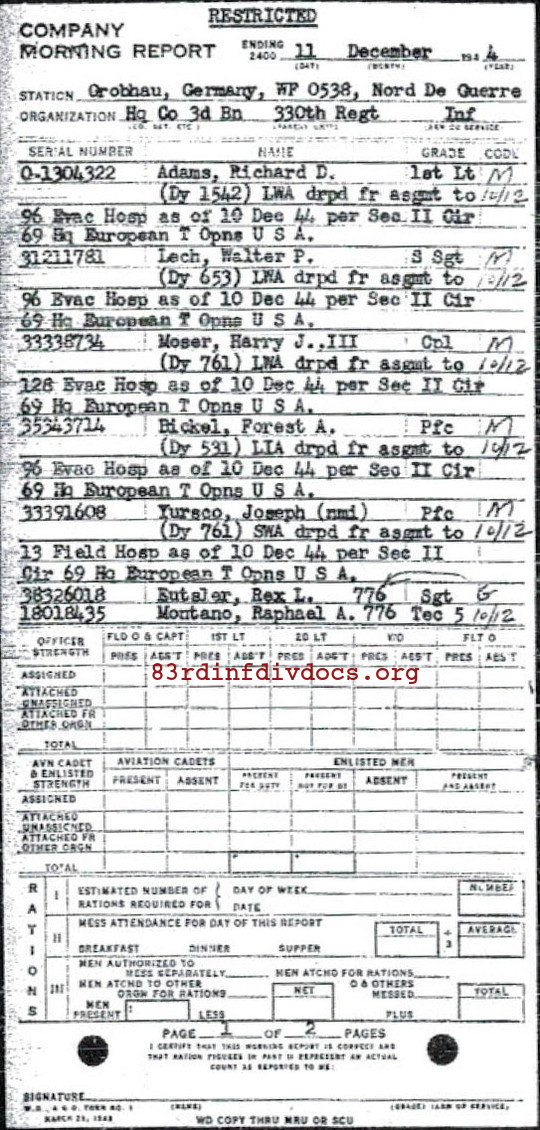 RESTRICTED
COMPANY
MORNING REPORT ENDING 2400 11 December 1944
(DAY) (MONTH) (YEAR)
STATION Grobhau, Germany, WF 0538, Nord De Guerre
ORGANIZATION Hq Co 3d Bn 330th Regt Inf
SERIAL NUMBER NAME GRADE CODE
O-1304322 Adams, Richard D. 1st Lt M
(Dy 1542) LWA drpd fr asgmt to 10/12
96 Evac Hosp as of 10 Dec 44 per Sec II Cir
69 Hq European T Opns U S A.
31211781 Lech, Walter P. S Sgt M
(Dy 653) LWA drpd fr asgmt to 10/12
96 Evac Hosp as of 10 Dec 44 per Sec II Cir
69 Hq European T Opns U S A.
33338734 Moser, Harry J.,III Cpl M
(Dy 761) LWA drpd fr asgmt to 10/12
128 Evac Hosp as of 10 Dec 44 per Sec II Cir
69 Hq European T Opns U S A.
35343714 Bickel, Forest A. Pfc M
(Dy 531) LIA drpd fr asgmt to 10/12
96 Evac Hosp as of 10 Dec 44 per Sec II Cir
69 Hq European T Opns U S A.
33391608 Yursco, Joseph (nmi) Pfc M
(Dy 761) SWA drpd fr asgmt to 10/12
13 Field Hosp as of 10 Dec 44 per Sec II
Cir 69 Hq European T Opns U S A.
38326018 Eutsler, Rex L. 776 Sgt G
18018435 Montano, Raphael A. 776 Tec 5 10/12
OFFICER STRENGTH FLD O & CAPT 1ST LT 2D LT W/O FLT O
PRES ABS'T PRES ABS'T PRES ABS'T PRES ABS'T PRES ABS'T
83rdinfdivdocs.org
ASSIGNED
ATTACHED UNASSIGNED
ATTACHED FR OTHER ORGN
TOTAL
AVN CADET & ENLISTED STRENGTH AVIATION CADETS ENLISTED MEN
PRESENT ABSENT PRESENT FOR DUTY PRESENT NOT FOR DY ABSENT PRESENT AND ABSENT
ASSIGNED
ATTACHED UNASSIGNED
ATTACHED FR OTHER ORGN
TOTAL
RATIONS
I ESTIMATED NUMBER OF DAY OF WEEK NUMBER
RATIONS REQUIRED FOR DATE
II MESS ATTENDANCE FOR DAY OF THIS REPORT TOTAL ÷ 3 AVERAGE
BREAKFAST DINNER SUPPER
III MEN AUTHORIZED TO MESS SEPARATELY MEN ATCHD FOR RATIONS
MEN ATCHD TO OTHER ORGN FOR RATIONS NET O & OTHERS MESSED TOTAL
MEN PRESENT LESS PLUS
PAGE 1 OF 2 PAGES
I CERTIFY THAT THIS MORNING REPORT IS CORRECT AND
THAT RATION FIGURES IN PART II REPRESENT AN ACTUAL
COUNT AS REPORTED TO ME:
SIGNATURE
W.D., A G O. FORM NO. 1 (NAME) (GRADE) (ARM OF SERVICE)
MARCH 25, 1943
WD COPY THRU MRU OR SCU